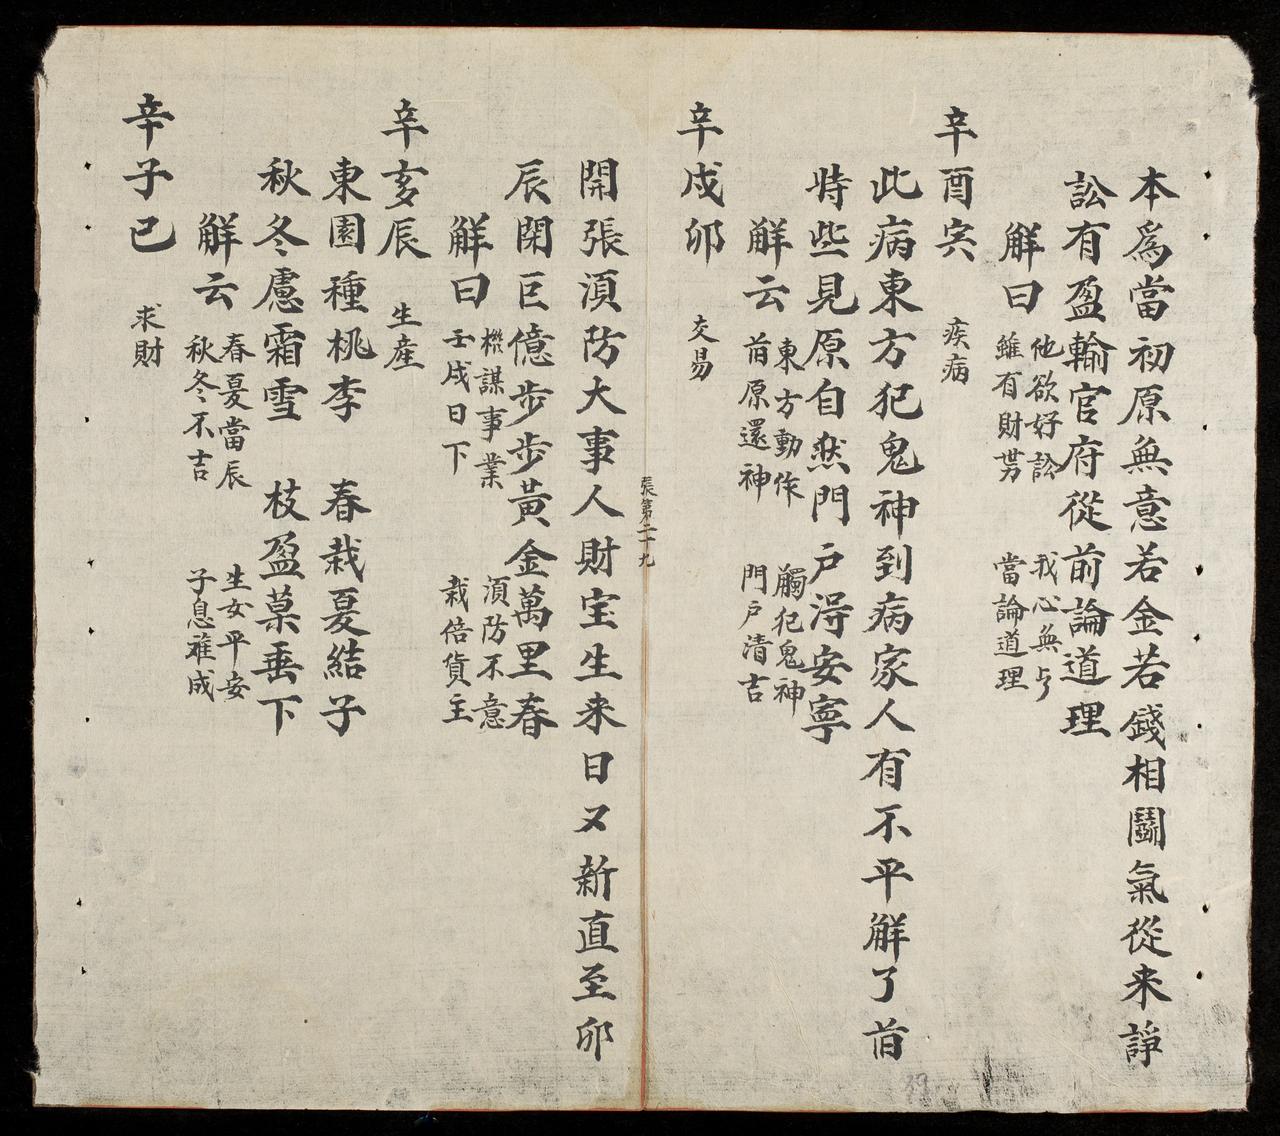 本爲當初原無意若金若錢相鬭氣從来諍
訟有盈輸官府從前論道理
解曰 他欲好訟 我心無与
雖有財勞 當論道理
辛酉寅 疾病
此病東方犯鬼神到病家人有不平解了首
時些見原自然門户淂安寧
解云 東方動作 觸犯鬼神
首原還神 門户清吉
辛戌卯 交易
張第二十九
開張湏防大事人財宝生来日又新直至卯
辰閑巨億步步黃金萬里春
解曰 機謀事業 湏防不意
壬戌日下 栽倍貨主
辛亥辰 生産
東園種桃李 春栽夏結子
秋冬慮霜雪 枝盈菓垂下
解云 春夏當辰 生女平安
秋冬不吉 子息难成
辛子巳 求財